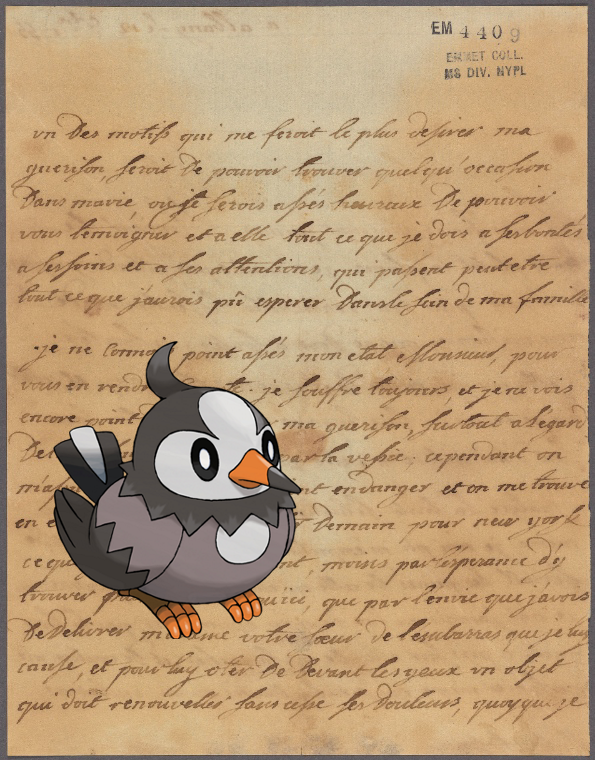 EM 4409
EMMET COLL.
MS DIV. NYPL
un des motifs qui me feroit le plus desirer ma
guerison, seroit de pouvoir trouver quelqu'occasion
Dans ma vie, où je serois assés heureux De pouvoir
vous temoigner et a elle tout ce que je dois a ses bontés
a ses soins et a ses attentions, qui passent peutetre
tout ce que j'aurois pû esperer Dans le sein de ma famille
je ne connois point assés mon etat Monsieur, pour
vous en rendre je souffre toujours, et je ne vois
encore point ma guerison, surtout a l'egard
par la vessie. cependant on
endanger et on me trouve
en e Demain pour new york
ce que moins par l'esperance d'y
trouver ici, que par l'envie que j'avois
De Delivrer votre sœur de l'embarras que je luy
cause, et pour luy oter De Devant les yeux un objet
qui doit renouveller sans cesse ses Douleurs, quoyque je